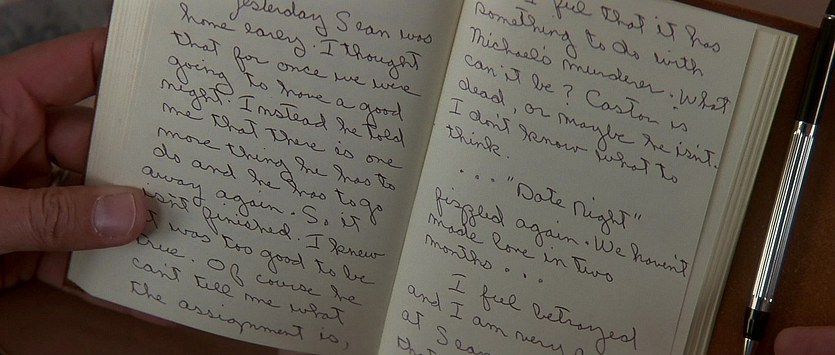 yesterday Sean was
home early. I thought
that for once we were
going to have a good
night. Instead he told
me that there is one
more thing he has to
do and he has to go
away again. So, it
isn't finished. I knew
it was too good to be
true. Of course he
can't tell me what
the assignment is,
I feel that it has
something to do with
Michael's murderer. What
can it be? Castor is
dead, or maybe he isn't.
I don't know what to
think.
... "Date Night"
fizzled again. We haven't
made love in two
months...
I feel betrayed
and I am very
at Sean
that